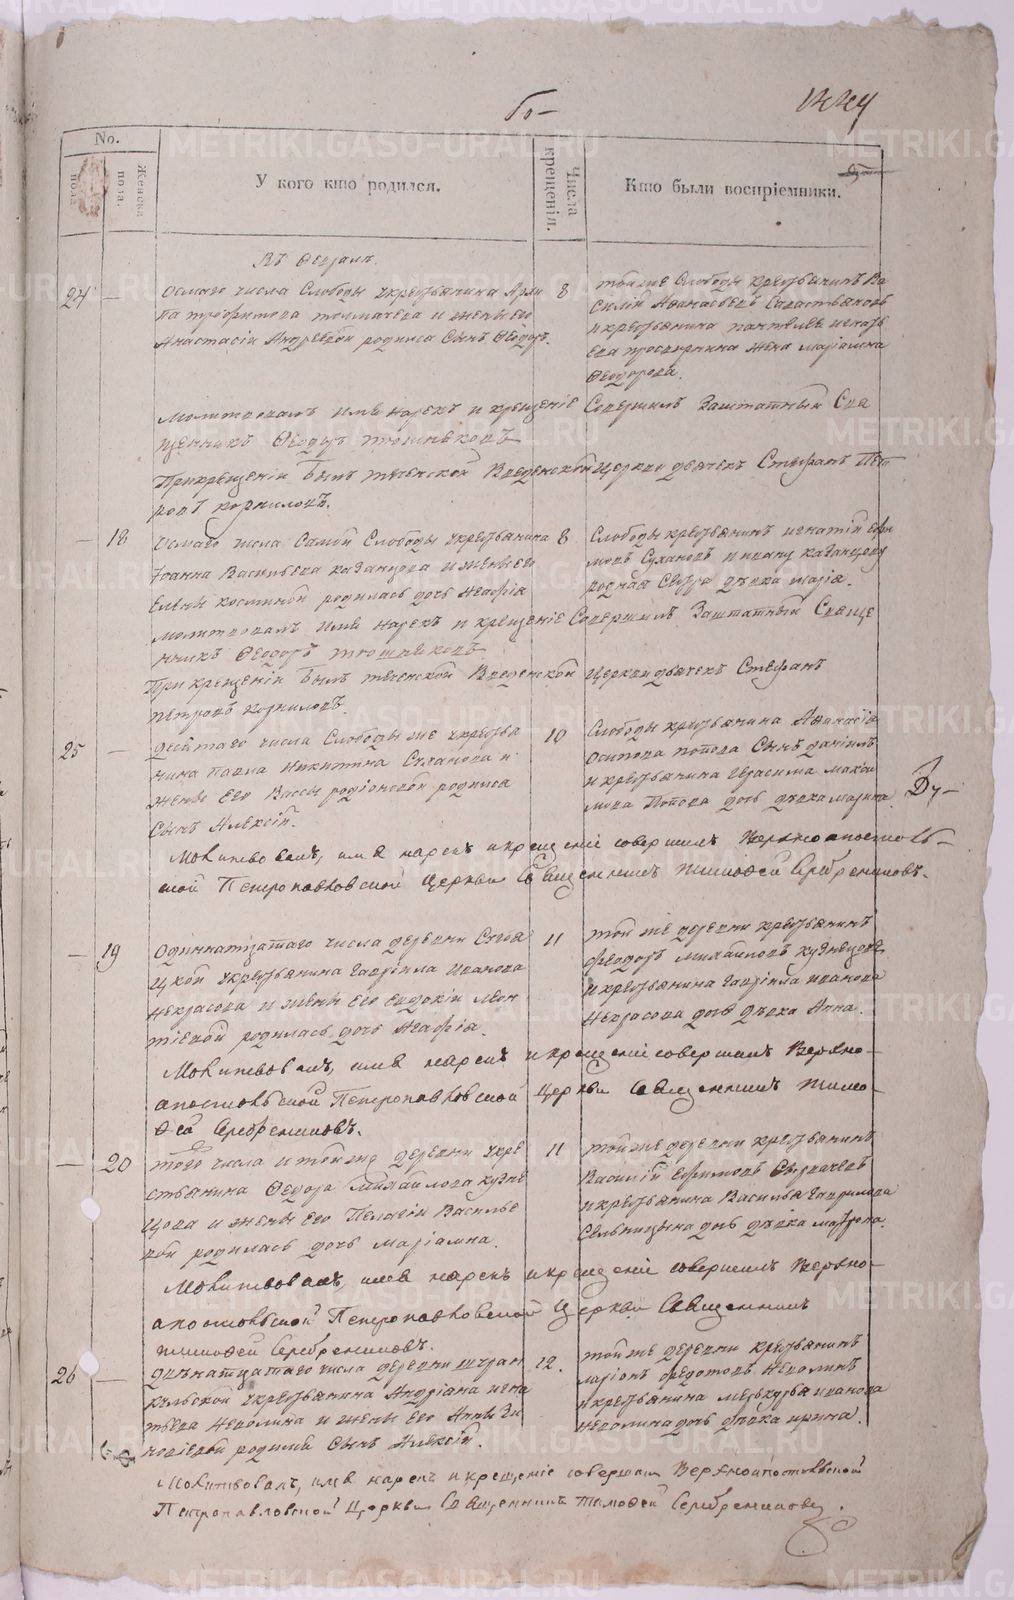 No.
Мужеска пола.
Женска пола.
У кого кто родился.
Числа крещенія.
Кто были воспріемники.
Въ Февралѣ.
24 —
Осмаго числа Слободы укрестьянина Архи
па трофимова толмачева и жены его
Анастасіи Андреевой родился Сынъ Ѳеодоръ.
8
тояже Слободы крестьянинъ Ва
силій Аѳанасьевъ Севастьяновъ
и крестьянина пантелея игнать
ева просвирнина жена маріамна
Ѳеодорова.
Молитвовалъ имя нарекъ и крещеніе Совершилъ Заштатный Свя
щенникъ Ѳеодоръ тюшняковъ
При крещеніи Былъ теченской Введенской Церкви дьячекъ Стефанъ Пет
ровъ корниловъ.
— 18
Осмаго числа Самой Слободы укрестьянина
Іоанна Васильева казанцова и жены его
Елены козминой родилась дочь Агафія
8
Слободы крестьянинъ игнатій ефи
мовъ Сухановъ и ивану казанцову
родная Сестра дѣвка марія.
молитвовалъ имя нарекъ и крещеніе Совершилъ Заштатный Свяще
нникъ Ѳеодоръ тюшняковъ
При крещеніи Былъ теченской Введенской Церкви дьячекъ Стефанъ
петровъ корниловъ.
25 —
десятаго числа Слободы же укрестья
нина павла никитина Суханова и
жены его Вассы родіоновой родился
Сынъ Алексій.
10
Слободы крестьянина Аѳанасія
Осипова попова Сынъ даніилъ
и крестьянина герасима макси
мова Попова дочь дѣвка марина.
Молитвовалъ, имя нарекъ и крещеніе совершилъ Верхноапостоль-
ской Петропавловской Церкви Священникъ Тимоѳей Серебренниковъ.
— 19
Одиннатцатаго числа деревни
укрестьянина гавріила Иванова
некрасова и жены его евдокіи леон
тіевой родилась дочь Агафіа.
11
той же деревни крестьянинъ
Ѳеодоръ михайловъ кузнецовъ
и крестьянина гавріила иванова
некрасова дочь дѣвка Анна.
Молитвовалъ, имя нарекъ и крещеніе совершилъ Верхно-
апостольской Петропавловской Церкви Священникъ Тимо-
ѳей Серебренниковъ.
— 20
того числа и той же деревни укре
стьянина Ѳеодора михайлова кузне
цова и жены его Пелагіи Василье
вой родилась дочь маріамна.
11
той же деревни крестьянинъ
Василій ефимовъ
и крестьянина Василья гаврилова
Сельницына дочь дѣвка матрона.
Молитвовалъ, имя нарекъ и крещеніе совершилъ Верхно-
апостольской Петропавловской Церкви Священникъ
Тимоѳей Серебренниковъ.
26 —
двѣнатцатаго числа деревни
укрестьянина Андріана игна
тьева неволина и жены его Анны
родился Сынъ Алексій.
12.
той же деревни крестьянинъ
маріонъ федотовъ неволинъ
и крестьянина меркурья иванова
неволина дочь дѣвка ирина.
Молитвовалъ, имя нарекъ и крещеніе совершилъ Верхноапостольской
Петропавловской Церкви Священникъ Тимоѳей Серебренниковъ.
METRIKI.GASO-URAL.RU